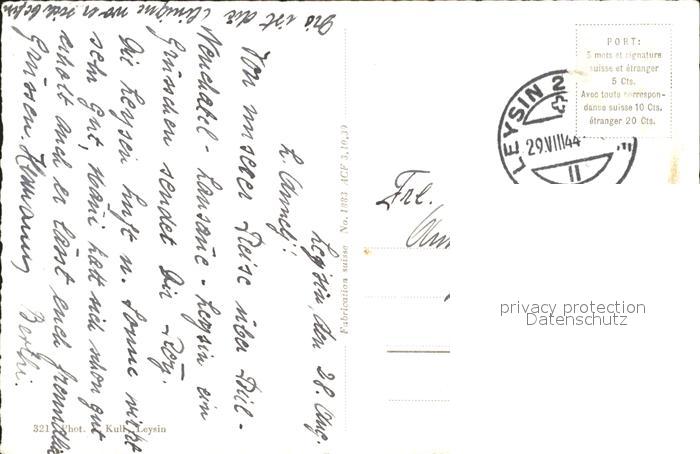 Leysin, den 28. Aug.
L. Annelj!
Von unserer Reise über Biel-
Neuchatel - Lausanne - Leysin ein
Grüsschen sendet Dir
Die Leysin luft u. Sonne wirkt
sehr gut, hat sich schon gut
erholt und er lässt euch freundlich
Grüssen. Hermann Berthi.
Dis ist die
Fabrication suisse No. 1883 ACF 3,10,39
321 Phot. Kull, Leysin
Frl.
PORT:
5 mots et signature
suisse et étranger
5 Cts.
Avec toute correspon-
dance suisse 10 Cts.
étranger 20 Cts.
LEYSIN 2
29.VIII 44
11
privacy protection
Datenschutz